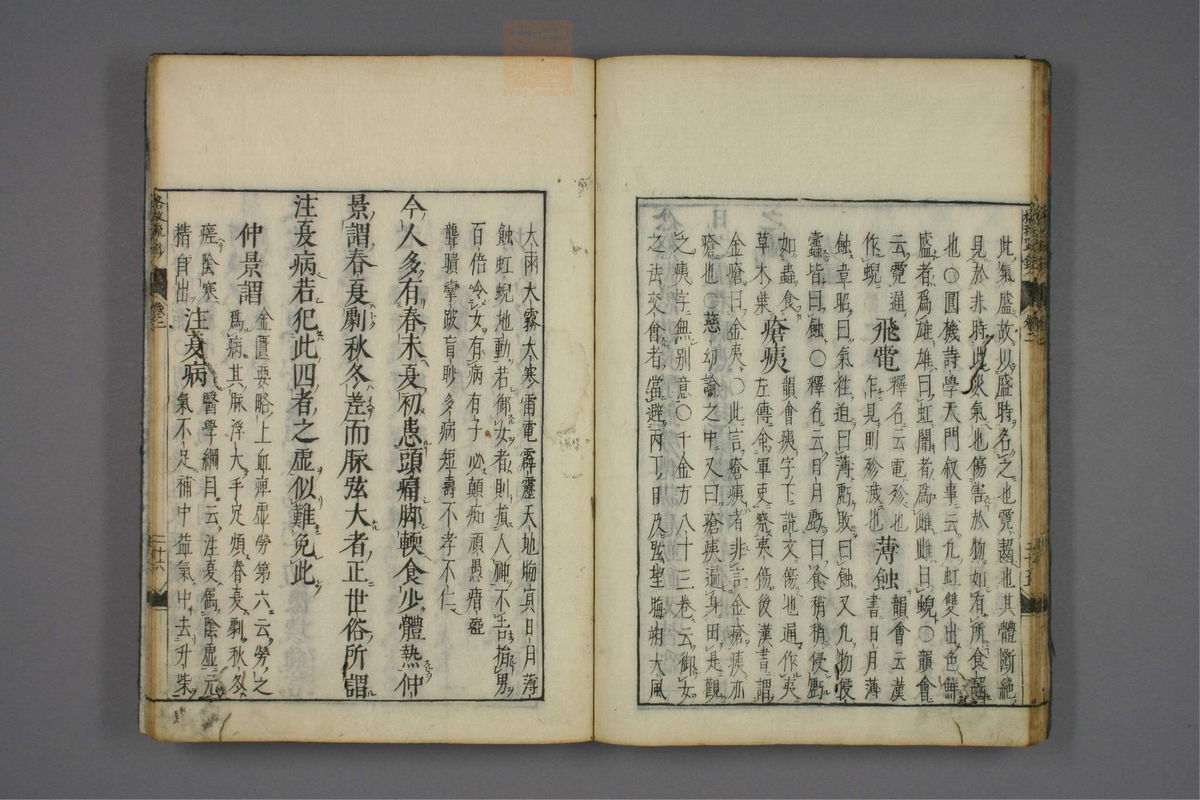 此氣盛故以盛時名之也霓齧也其體斷絕
見於非時此災氣也傷害於物如有所食齧
也○圓機詩學天門叙事云九虹雙出色鮮
盛者爲雄雄曰虹闇者爲雌雌曰蜺○韻會
云霓通作蜺
飛電釋名云電殄也乍見則殄滅也
薄蝕韻會云漢書日月薄
蝕韋昭曰氣往迫曰薄虧敗曰蝕又凢物侵
蠹皆曰蝕○釋名云日月虧曰食稍稍侵虧
如蟲食草木葉
瘡痍韻會痍字下說文傷也通作夷
左傳命軍吏察夷傷後漢書謂
金瘡曰金夷○此言瘡痍者非言金瘡痍亦
瘡也○慈幼論之中又曰瘡痍遍身田是觀
之痍字無別意○千金方八十三卷云御女
之法交會者當避丙丁日及弦望晦朔大風
大雨大霧大寒雷電霹靂天地晦冥日月薄
蝕虹蜺地動若御女者則損人神不吉損男
百倍令女有病有子必顛痴頑愚瘖瘂
聾聵攣跛盲眇多病短壽不孝不仁
今人多有春末夏初患頭痛脚輭食少體熱仲
景謂春夏劇秋冬差而脉弦大者正世俗所謂
注夏病若犯此四者之虛似難免此
仲景謂金匱要略上血痺虛勞第六云勞之
爲病其脉浮大手足煩春夏劇秋冬
瘥陰寒精自出
注夏病醫學綱目云注夏屬陰虛元
氣不足補中益氣中去升柴
卷二
二十六